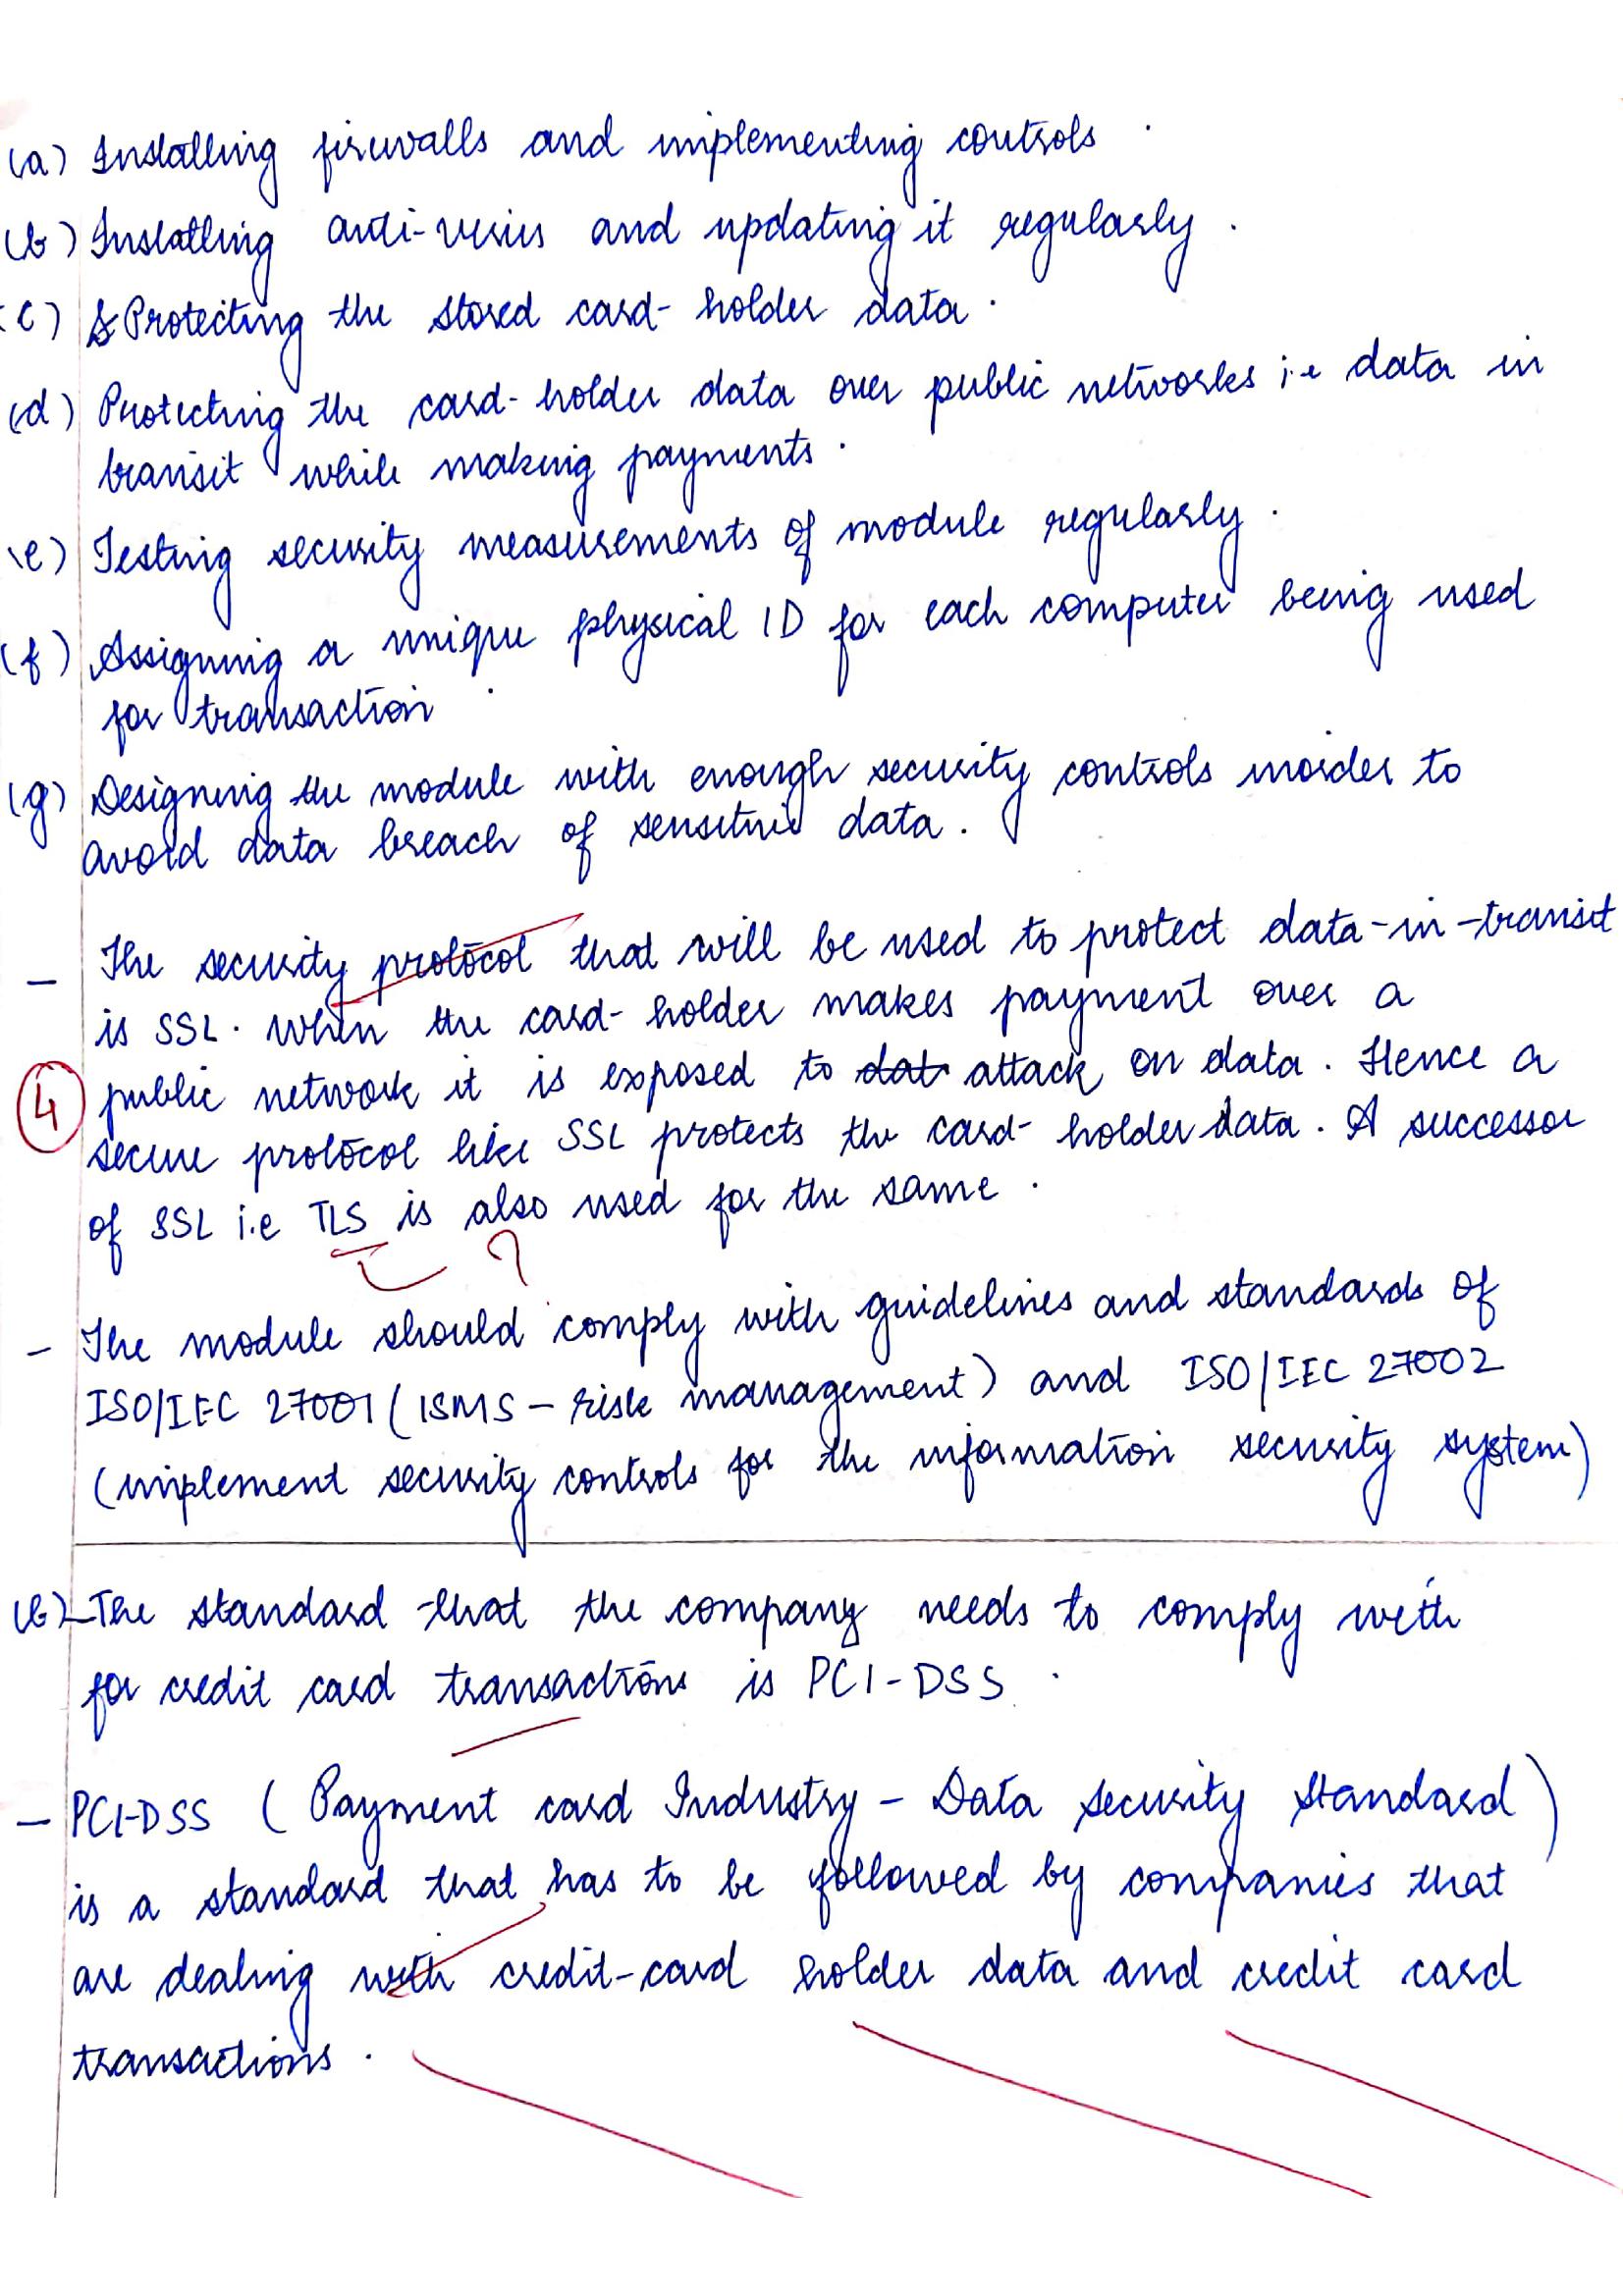 (a) Installing firewalls and implementing controls.
(b) Installing anti-virus and updating it regularly.
(c) Protecting the stored card-holder data.
(d) Protecting the card-holder data over public networks i.e data in
transit while making payments.
(e) Testing security measurements of module regularly.
(f) Assigning a unique physical ID for each computer being used
for transaction.
(g) Designing the module with enough security controls inorder to
avoid data breach of sensitive data.
- The security protocol that will be used to protect data-in-transit
is SSL. When the card-holder makes payment over a
④ public network it is exposed to dat attack on data. Hence a
secure protocol like SSL protects the card-holder data. A successor
of SSL i.e TLS is also used for the same.
?
- The module should comply with guidelines and standards of
ISO/IEC 27001 (ISMS - risk management) and ISO/IEC 27002
(implement security controls for the information security system)
(b) - The standard that the company needs to comply with
for credit card transactions is PCI-DSS.
- PCI-DSS (Payment card Industry - Data security standard)
is a standard that has to be followed by companies that
are dealing with credit-card holder data and credit card
transactions.